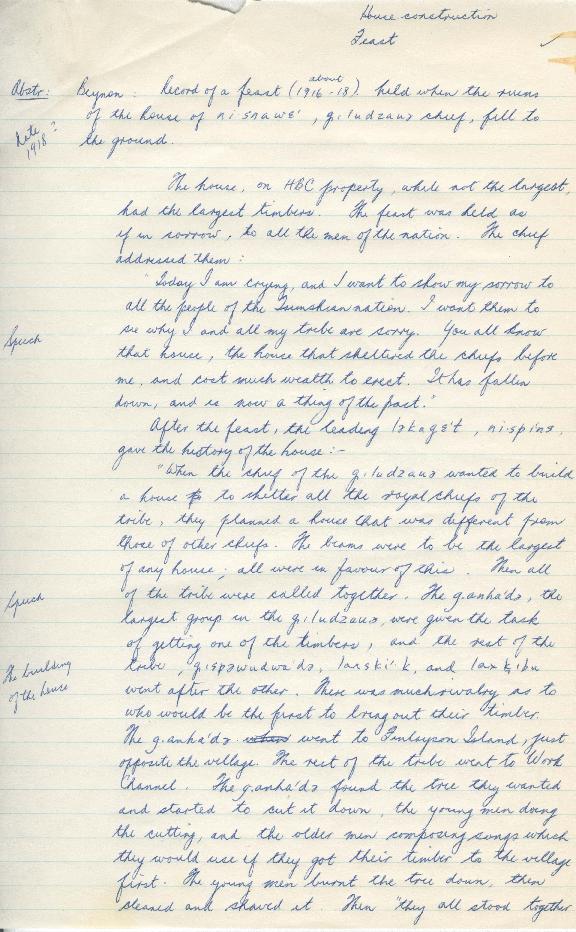 House construction
Feast
Abstr: Beynon: Record of a feast (about 1916-18) held when the ruins
of the house of nisnawe', g.iludzauə chief, fell to
the ground.
Date?
1918
The house, on HBC property, while not the largest,
had the largest timbers. The feast was held as
if in sorrow, to all the men of the nation. The chief
addressed them:
"Today I am crying, and I want to show my sorrow to
all the people of the Tsimshian nation. I want them to
see why I and all my tribe are sorry. You all know
Speech
that house, the house that sheltered the chiefs before
me, and cost much wealth to erect. It has fallen
down, and is now a thing of the past."
After the feast, the leading ləkag.ə't, nispins,
gave the history of the house:-
"When the chief of the g.iludzauə wanted to build
a house to shelter all the royal chiefs of the
tribe, they planned a house that was different from
those of other chiefs. The beams were to be the largest
of any house; all were in favour of this. Then all
Speech
of the tribe were called together. The g.anha'də, the
largest group in the g.iludzauə, were given the task
of getting one of the timbers, and the rest of the
The building
of the house
tribe, gispəwudwa'də, larski'k, and laxkibu
went after the other. There was much rivalry as to
who would be the first to bring out their timber.
The g.anha'də went to Finlayson Island, just
opposite the village. The rest of the tribe went to Work
Channel. The g.anha'də found the tree they wanted
and started to cut it down, the young men doing
the cutting, and the older men composing songs which
they would use if they got their timber to the village
first. The young men burnt the tree down, then
cleaned and shaved it. Then "they all stood together